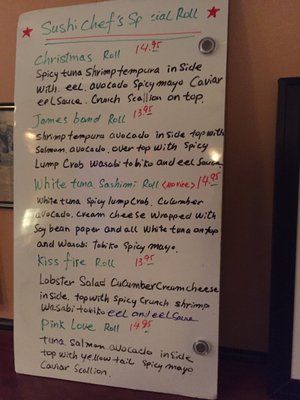 Sushi Chef's Special Roll
Christmas Roll 14.95
Spicy tuna Shrimp tempura inside
with eel. avocado spicy mayo Caviar
eel Sauce. Crunch Scallion on top.
James bond Roll 13.95
Shrimp tempura avocado inside top with
Salmon. avocado. over top with spicy
Lump Crab Wasabi tobiko and eel Sauce
White tuna Sashimi Roll (no rice) 14.95
White tuna spicy lump Crab. Cucumber
avocado. cream cheese wrapped with
Soy bean paper and all White tuna on top
and Wasabi tobiko Spicy mayo.
Kiss fire Roll 13.95
Lobster Salad Cucumber Cream cheese
inside. top with Spicy Crunch Shrimp
Wasabi tobiko eel and eel Sauce
Pink Love Roll 14.95
tuna. Salmon. avocado inside
top with yellow tail spicy mayo
Caviar Scallion.